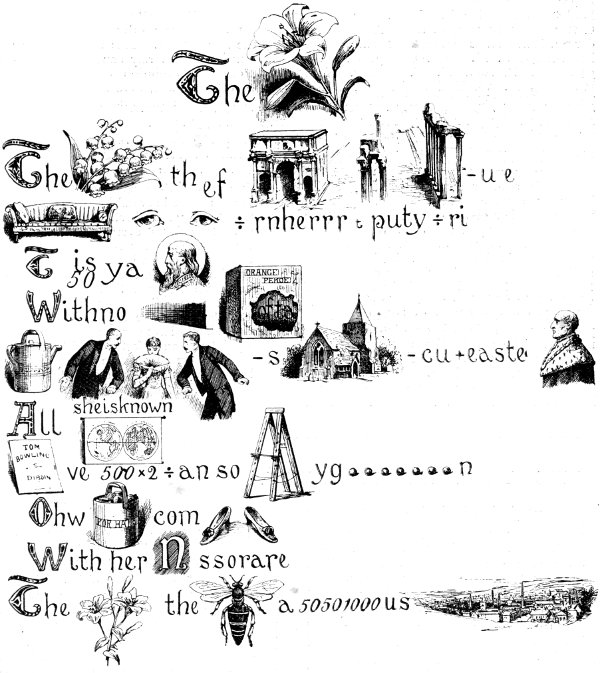 The
The , th ef -ue
÷ rnherrr t puty ÷ ri
T is ya
50
ORANGE
PEKOE
Withno
-s -cu+easte
All sheisknown
TOM
BOWLING
DIBDIN
ve 500×2÷an so yg.......n
Ohw com
With her N ssorare
The the a 50501000us